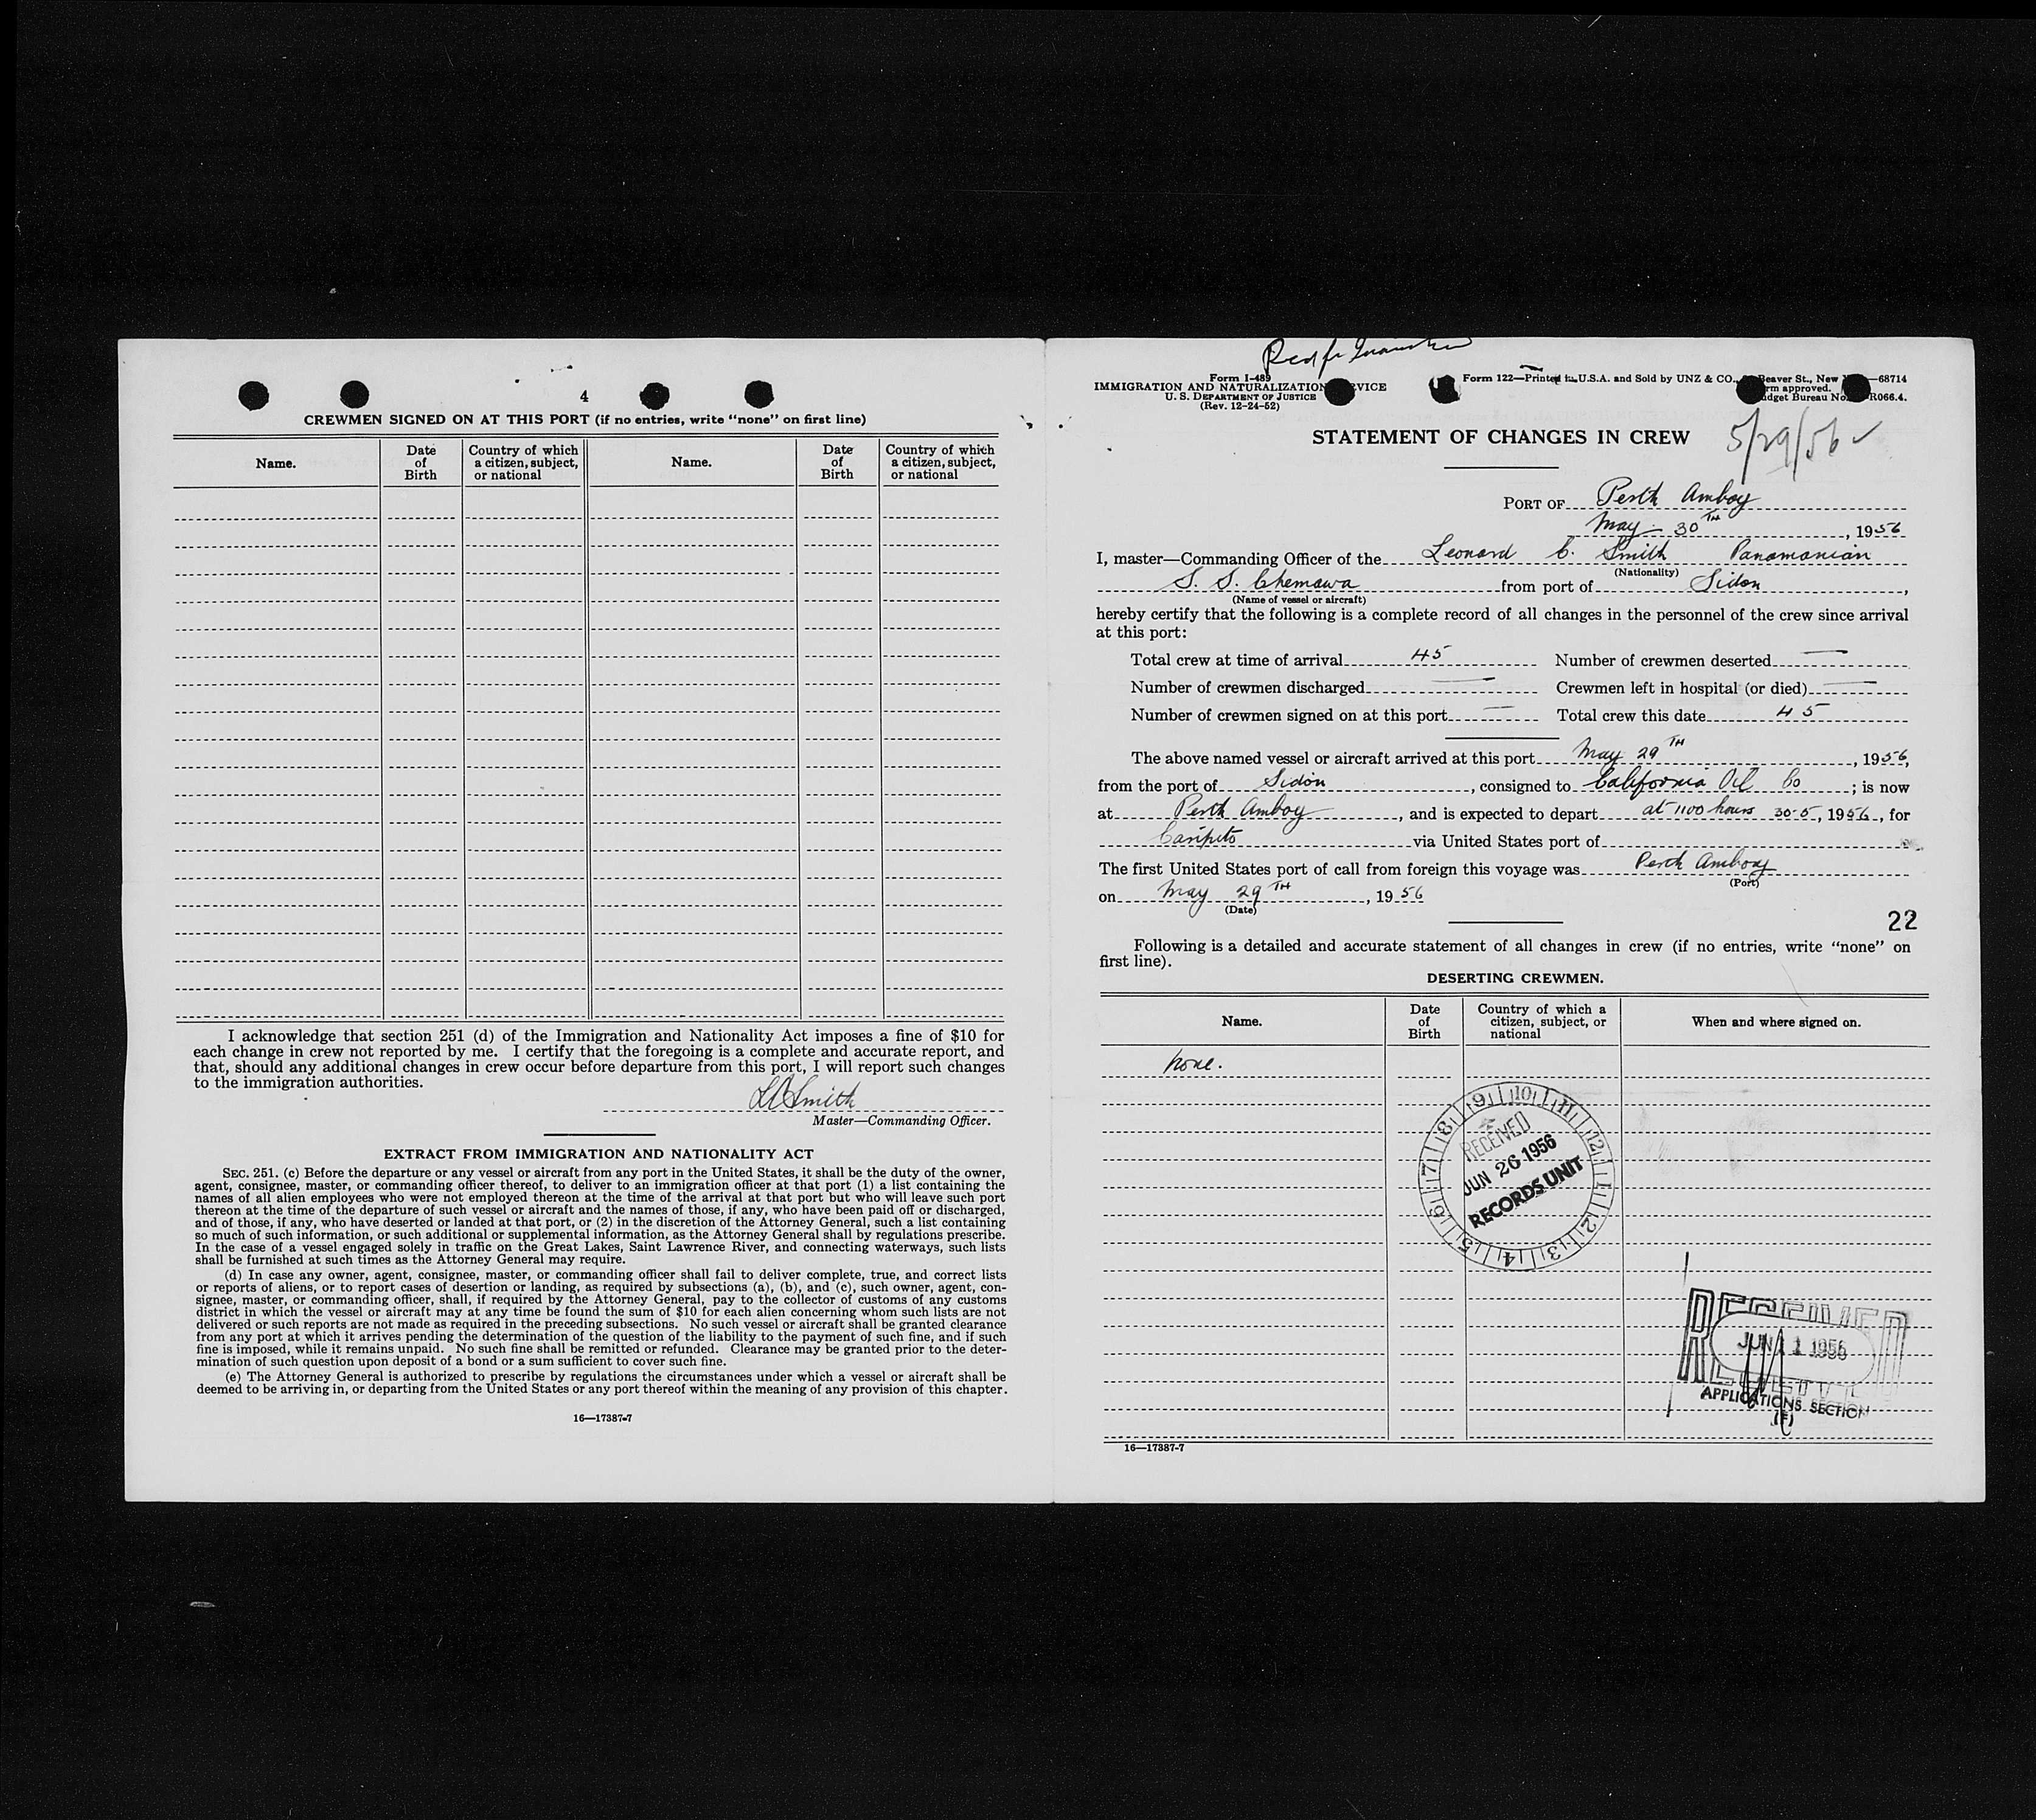 4
CREWMEN SIGNED ON AT THIS PORT (if no entries, write “none” on first line)
Name. Date of Birth Country of which a citizen, subject, or national Name. Date of Birth Country of which a citizen, subject, or national
I acknowledge that section 251 (d) of the Immigration and Nationality Act imposes a fine of $10 for
each change in crew not reported by me. I certify that the foregoing is a complete and accurate report, and
that, should any additional changes in crew occur before departure from this port, I will report such changes
to the immigration authorities.
LCSmith
Master—Commanding Officer.
EXTRACT FROM IMMIGRATION AND NATIONALITY ACT
SEC. 251. (c) Before the departure or any vessel or aircraft from any port in the United States, it shall be the duty of the owner,
agent, consignee, master, or commanding officer thereof, to deliver to an immigration officer at that port (1) a list containing the
names of all alien employees who were not employed thereon at the time of the arrival at that port but who will leave such port
thereon at the time of the departure of such vessel or aircraft and the names of those, if any, who have been paid off or discharged,
and of those, if any, who have deserted or landed at that port, or (2) in the discretion of the Attorney General, such a list containing
so much of such information, or such additional or supplemental information, as the Attorney General shall by regulations prescribe.
In the case of a vessel engaged solely in traffic on the Great Lakes, Saint Lawrence River, and connecting waterways, such lists
shall be furnished at such times as the Attorney General may require.
(d) In case any owner, agent, consignee, master, or commanding officer shall fail to deliver complete, true, and correct lists
or reports of aliens, or to report cases of desertion or landing, as required by subsections (a), (b), and (c), such owner, agent, con-
signee, master, or commanding officer, shall, if required by the Attorney General, pay to the collector of customs of any customs
district in which the vessel or aircraft may at any time be found the sum of $10 for each alien concerning whom such lists are not
delivered or such reports are not made as required in the preceding subsections. No such vessel or aircraft shall be granted clearance
from any port at which it arrives pending the determination of the question of the liability to the payment of such fine, and if such
fine is imposed, while it remains unpaid. No such fine shall be remitted or refunded. Clearance may be granted prior to the deter-
mination of such question upon deposit of a bond or a sum sufficient to cover such fine.
(e) The Attorney General is authorized to prescribe by regulations the circumstances under which a vessel or aircraft shall be
deemed to be arriving in, or departing from the United States or any port thereof within the meaning of any provision of this chapter.
16—17387-7
Form I-489
IMMIGRATION AND NATURALIZATION VICE
U. S. DEPARTMENT OF JUSTICE
(Rev. 12-24-52)
Form 122—Printed in U.S.A. and Sold by UNZ & CO., Beaver St., New —68714
rm approved.
dget Bureau No. R066.4.
STATEMENT OF CHANGES IN CREW
5/29/56 ✓
PORT OF Perth Amboy
May - 30TH, 1956
I, master—Commanding Officer of the Leonard C. Smith Panamanian
(Nationality)
S. S. Chemawa from port of Sidon,
(Name of vessel or aircraft)
hereby certify that the following is a complete record of all changes in the personnel of the crew since arrival
at this port:
Total crew at time of arrival 45 Number of crewmen deserted —
Number of crewmen discharged — Crewmen left in hospital (or died) —
Number of crewmen signed on at this port — Total crew this date 45
The above named vessel or aircraft arrived at this port May 29TH, 1956,
from the port of Sidon, consigned to California Oil Co; is now
at Perth Amboy, and is expected to depart at 1100 hours 30-5, 1956, for
Caripito via United States port of
The first United States port of call from foreign this voyage was Perth Amboy
(Port)
on May 29TH, 1956
(Date)
22
Following is a detailed and accurate statement of all changes in crew (if no entries, write “none” on
first line).
DESERTING CREWMEN.
Name. Date of Birth Country of which a citizen, subject, or national When and where signed on.
None.
9 10 11 12 1 2 3 4 5 6 7 8
RECEIVED
JUN 26 1956
RECORDS UNIT
RECEIVED
JUN 11 1956
APPLICATIONS SECTION
(F)
16—17387-7